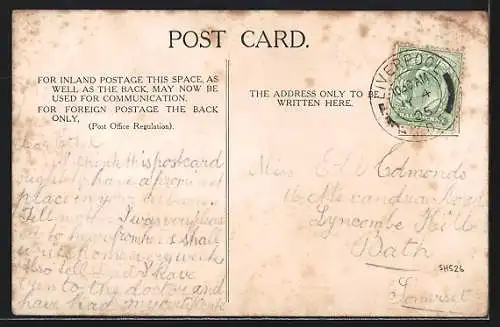 POST CARD.
FOR INLAND POSTAGE THIS SPACE, AS
WELL AS THE BACK, MAY NOW BE
USED FOR COMMUNICATION.
FOR FOREIGN POSTAGE THE BACK
ONLY,
(Post Office Regulation).
THE ADDRESS ONLY TO BE
WRITTEN HERE.
LIVERPOOL
10 AM
Dear
I think this postcard
have a
place in your
Tell I was very
to hear from her I shall
write home every week
Also tell Dad I have
been to the doctor and
have had my certificate
Miss E Edmonds
16 Alexandra Road
Lyncombe Hill
Bath
Somerset
SH526